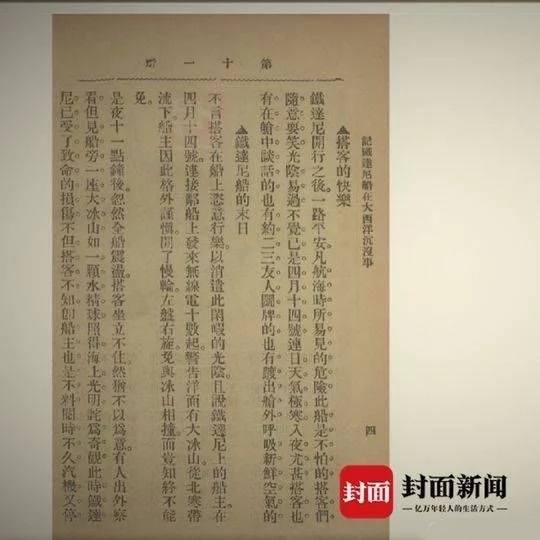 第十一期
記鐵達尼船在大西洋沉沒事
四
▲搭客的快樂
鐵達尼開行之後。一路平安。凡航海時所易見的危險。此船是不怕的。搭客們
隨意耍笑。光陰易過。不覺已是四月十四號。連日天氣極寒。入夜尤甚。搭客也
有在艙中談話的。也有約二三友人鬬牌的。也有踱出艙外呼吸新鮮空氣的。
▲鐵達尼船的末日
不言搭客在船上恣意行樂。以消遣此閑暇的光陰。且說鐵達尼上的船主。在
四月十四號。連接鄰船上發來無線電十數起。警告洋面有大冰山。從北寒帶
流下。船主因此格外謹慎。開了慢輪。左盤右旋。免與冰山相撞。而豈知終不能
免。
是夜十一點鐘後。忽然全船震盪。搭客坐立不住。然猶不以爲意。有人出外察
看。但見船旁一座大冰山。如一顆水精球。照得海上光明。詫爲奇觀。此時鐵達
尼已受了致命的損傷。不但搭客不知。卽船主也是不料。閱時不久。汽機又停
封面
封面新闻
亿万年轻人的生活方式